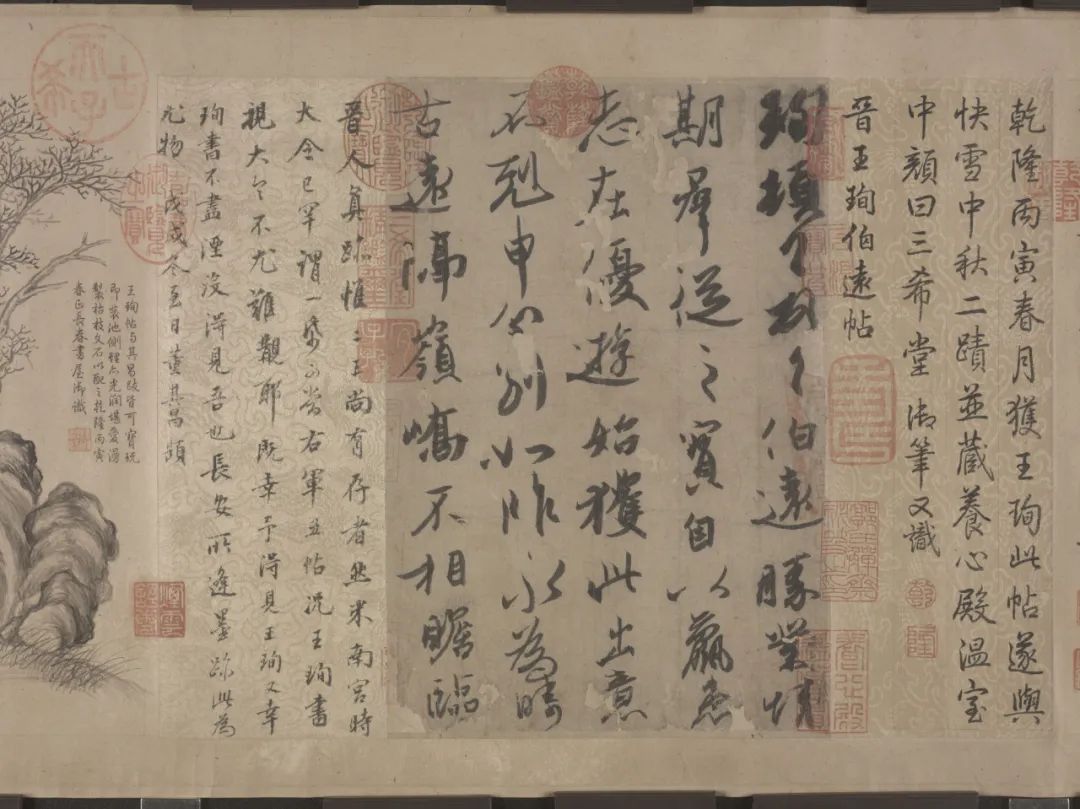 乾隆丙寅春月獲王珣此帖遂與
快雪中秋二蹟並藏養心殿溫室
中顏曰三希堂 御筆又識
晉王珣伯遠帖
珣頓首頓首伯遠勝業情
期群從之寶自以羸患
志在優遊始獲此出意
不剋申分別如昨永為疇
古遠隔嶺嶠不相瞻臨
晉人真跡惟二王尚有存者然米南宮時
大令已罕謂一紙可當右軍五帖況王珣書
視大令不尤難覯耶既幸予得見王珣又幸
珣書不盡湮沒得見吾也長安所逢墨跡此為
尤物 戊戌冬至日董其昌題
王珣帖與其昌跋皆可寶玩
即裝池側理亦光潤堪愛漫
製枯枝文石以配之乾隆丙寅
春正長春書屋御識
古希天子